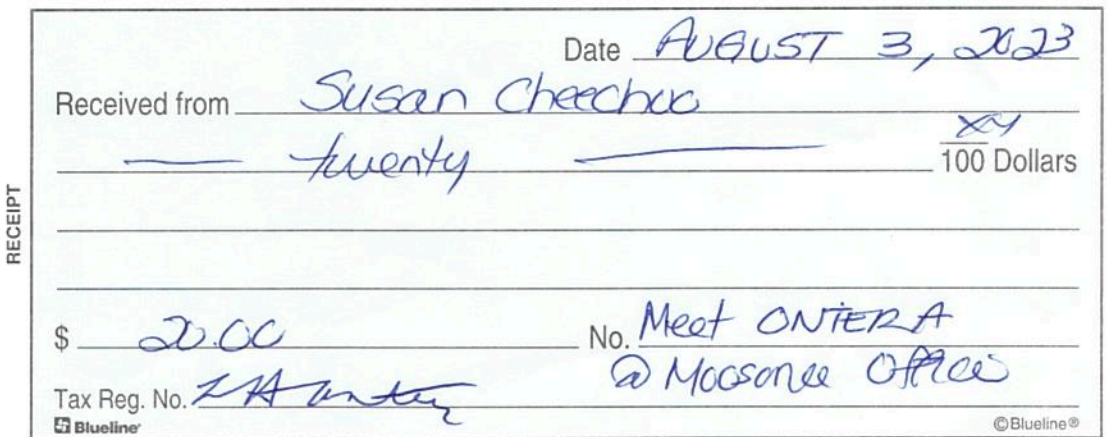 Date AUGUST 3, 2023
Received from Susan Cheechoo
twenty
100 Dollars
RECEIPT
$ 20.00 No. Meet ONTERA
@ Moosonee Office
Tax Reg. No.
Blueline ©Blueline®